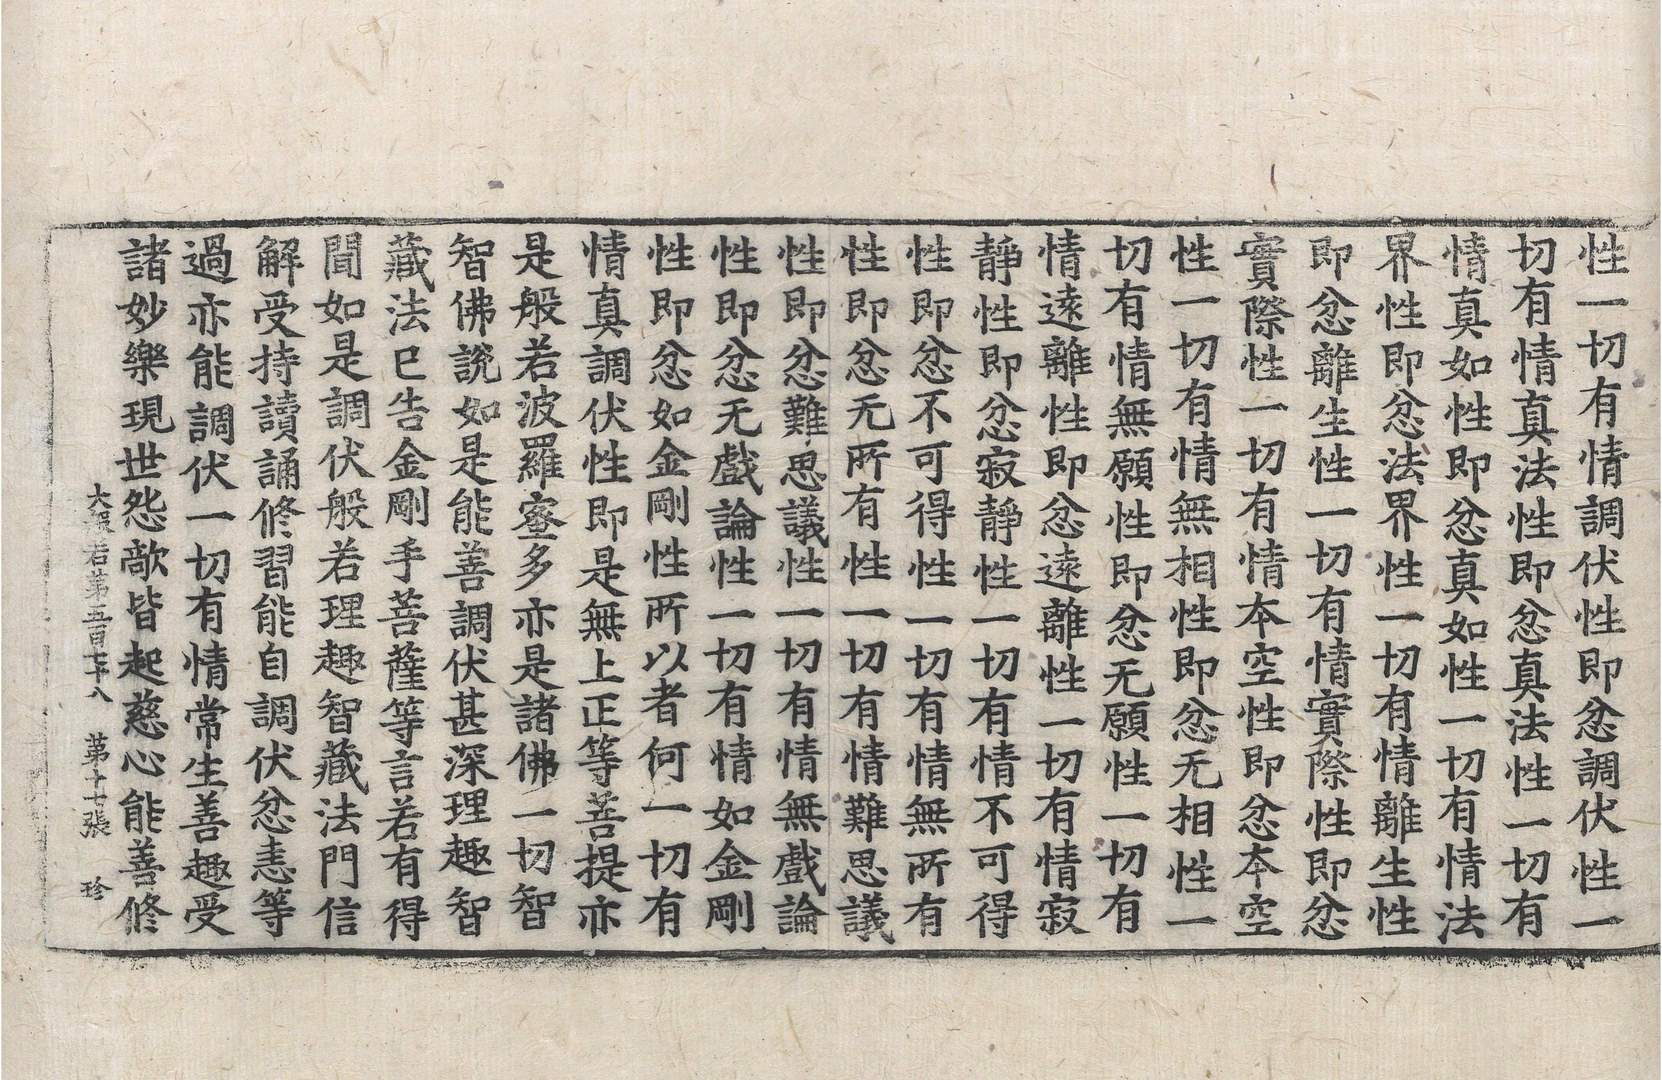 性一切有情調伏性即忿調伏性一
切有情真法性即忿真法性一切有
情真如性即忿真如性一切有情法
界性即忿法界性一切有情離生性
即忿離生性一切有情實際性即忿
實際性一切有情本空性即忿本空
性一切有情無相性即忿无相性一
切有情無願性即忿无願性一切有
情遠離性即忿遠離性一切有情寂
靜性即忿寂靜性一切有情不可得
性即忿不可得性一切有情無所有
性即忿无所有性一切有情難思議
性即忿難思議性一切有情無戲論
性即忿无戲論性一切有情如金剛
性即忿如金剛性所以者何一切有
情真調伏性即是無上正等菩提亦
是般若波羅蜜多亦是諸佛一切智
智佛說如是能善調伏甚深理趣智
藏法已告金剛手菩薩等言若有得
聞如是調伏般若理趣智藏法門信
解受持讀誦修習能自調伏忿恚等
過亦能調伏一切有情常生善趣受
諸妙樂現世怨敵皆起慈心能善修
大般若第五百七十八 第十七張 珍